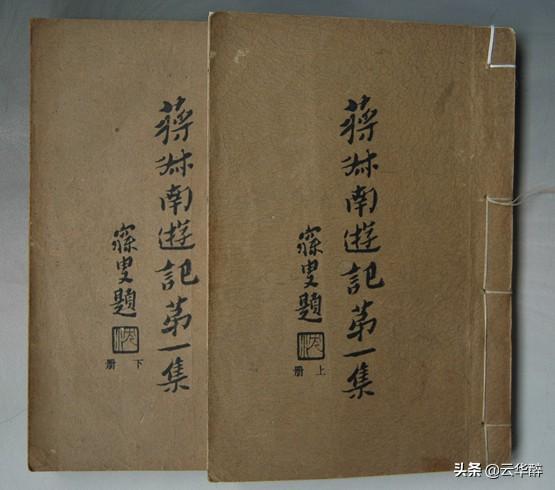 蔣叔南遊記第一集
寐叟題
上册
蔣叔南遊記第一集
寐叟題
下册
头条 @云华醉